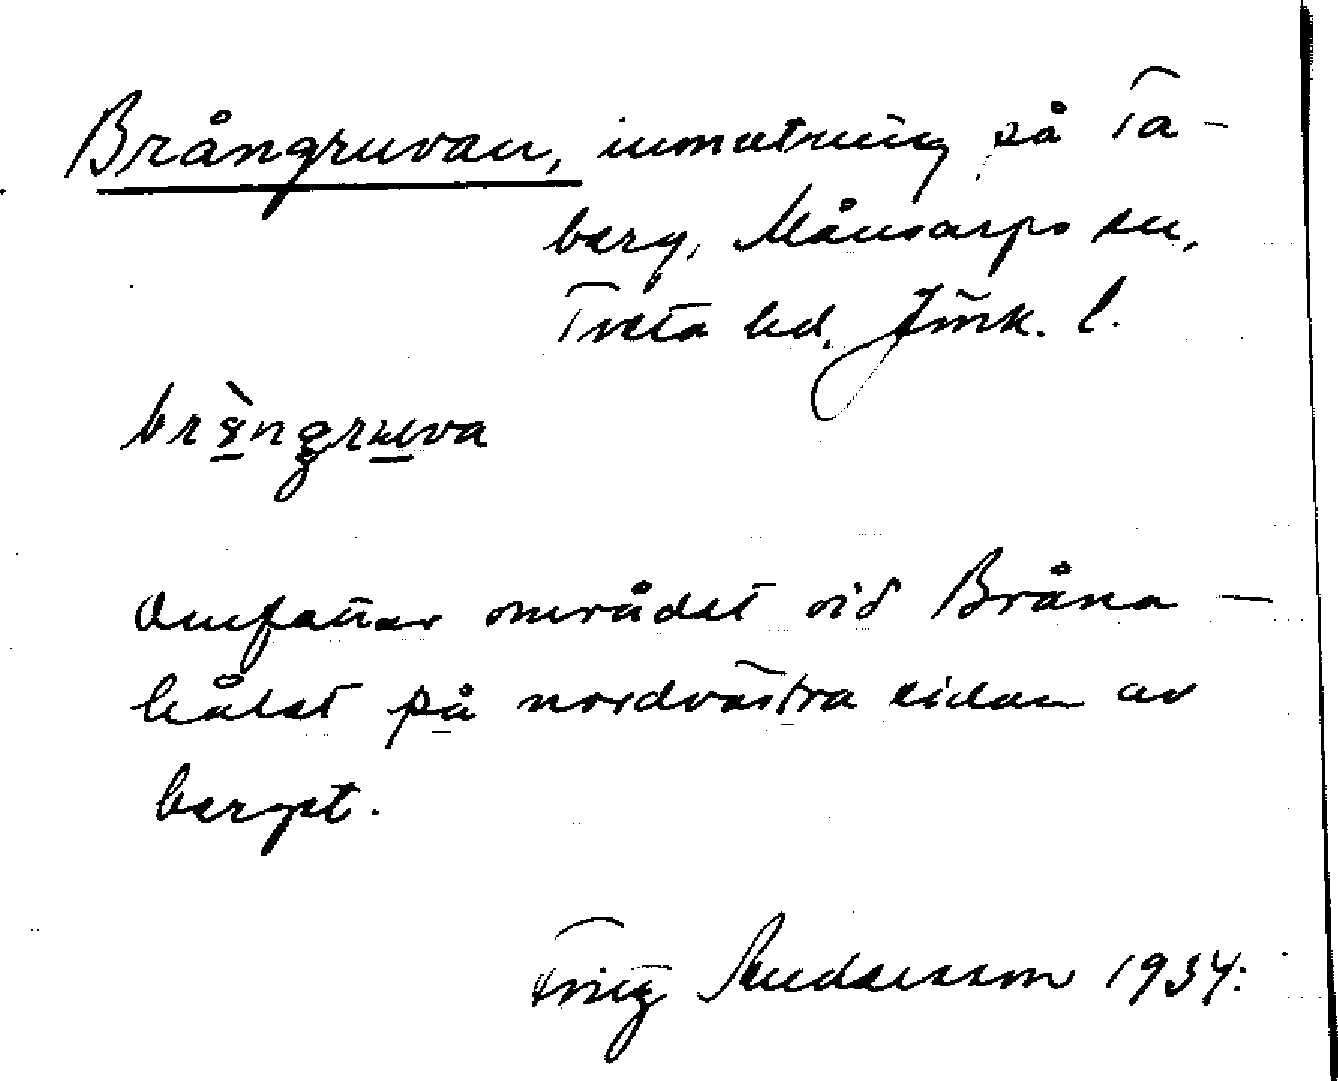 Brångruvan, inmutning på Ta-
berg, Månsarps sn,
Tveta hd. Jönk. l.
Omfattar området vid Bråna-
hålet på nordvästra sidan av
berget.
Andersson 1934.